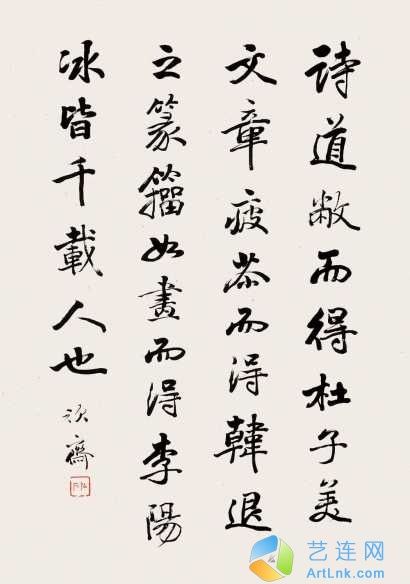 诗道敝而得杜子美
文章疲苶而得韓退
之篆籀如畫而得李陽
冰皆千載人也
齋
艺连网
ArtLnk.com